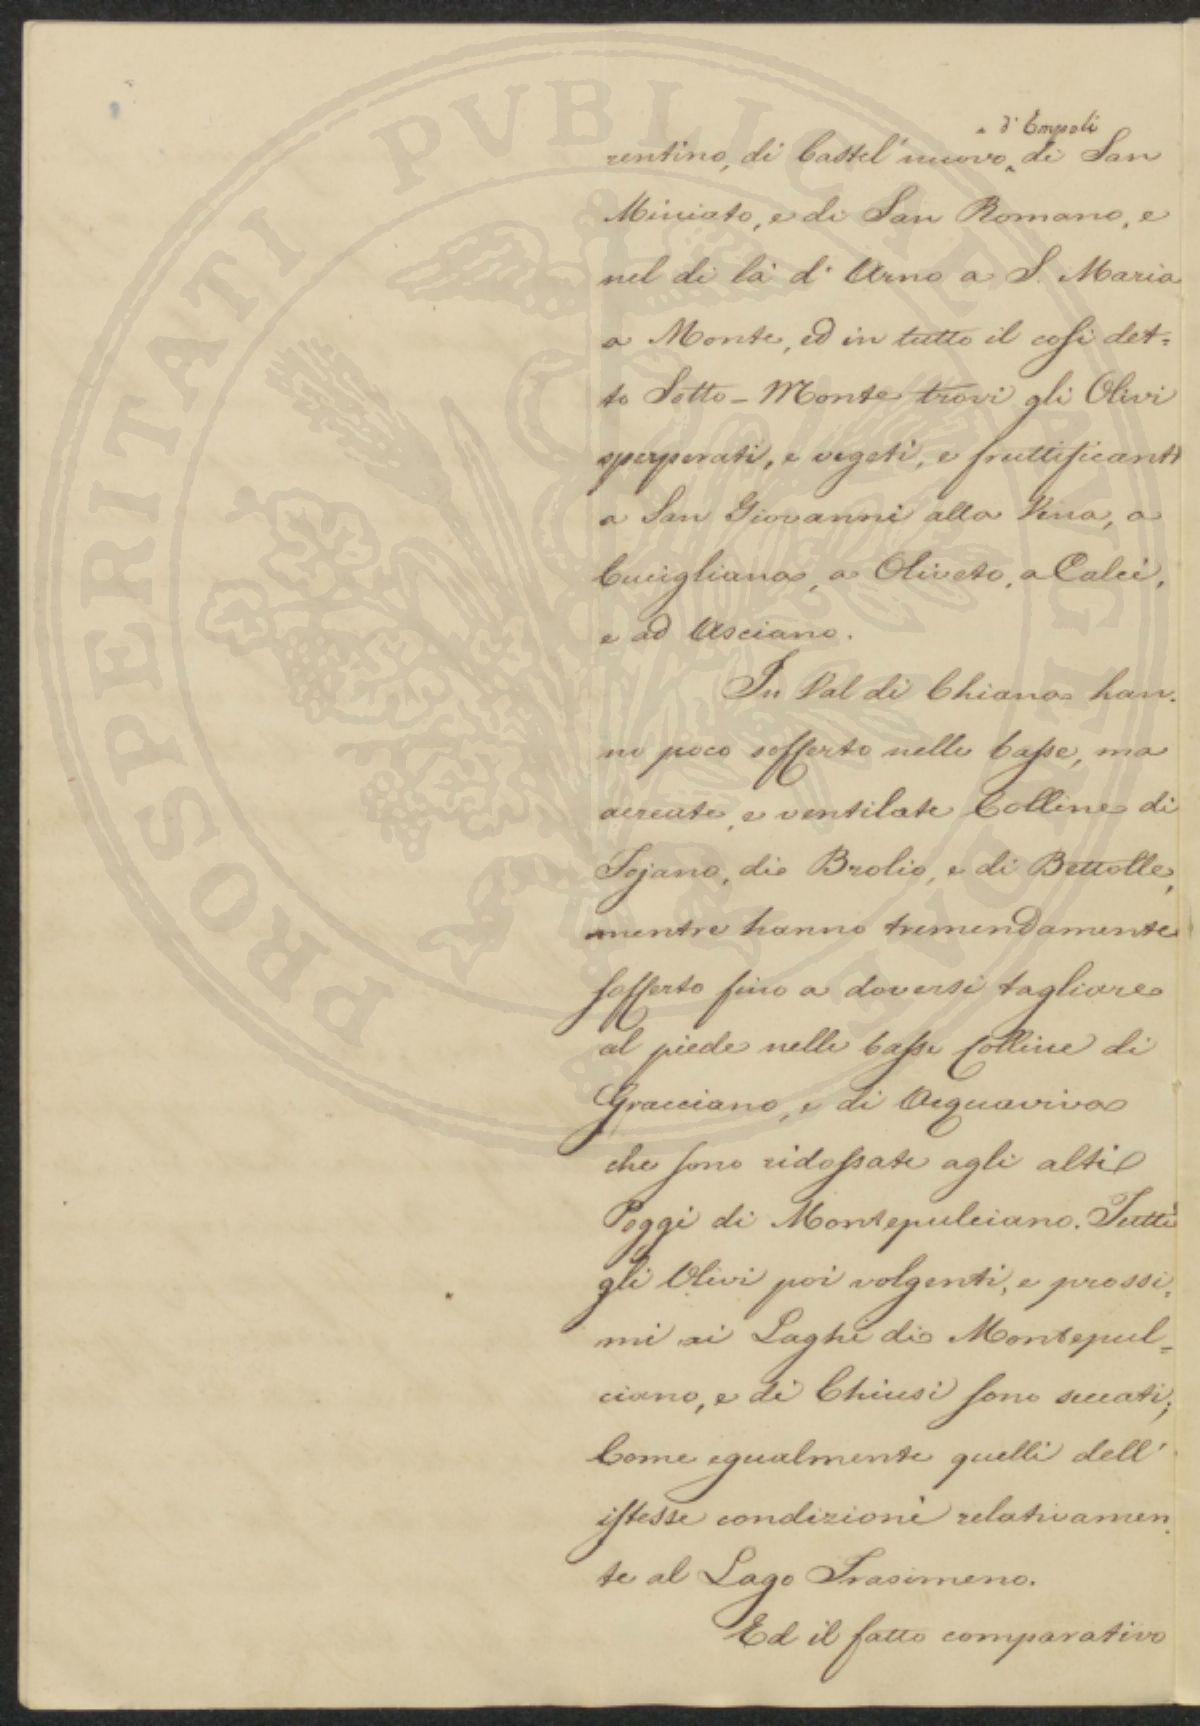 d'Empoli
rentino, di Castel'nuovo, di San
Miniato, e di San Romano, e
nel di là d'Arno a S. Maria
a Monte, ed in tutto il cosi det=
to Sotto-Monte trovi gli Olivi
sperperati, e vegeti, e fruttificanti
a San Giovanni alla Vena, a
Cucigliana, a Oliveto, a Calci,
e ad Asciano.
In Val di Chiana han.
no poco sofferto nelle basse, ma
aereate, e ventilate Colline di
Fojano, di Brolio, e di Bettolle,
mentre hanno tremendamente
sofferto fino a doversi tagliare
al piede nelle basse Colline di
Gracciano, e di Acquaviva
che sono ridossate agli alti
Poggi di Montepulciano. Tutti
gli Olivi poi volgenti, e prossi.
mi ai Laghi di Montepul=
ciano, e di Chiusi sono seccati;
Come egualmente quelli dell'
istesse condizioni relativamen.
te al Lago Trasimeno.
Ed il fatto comparativo
PROSPERITATI PVBLICAE